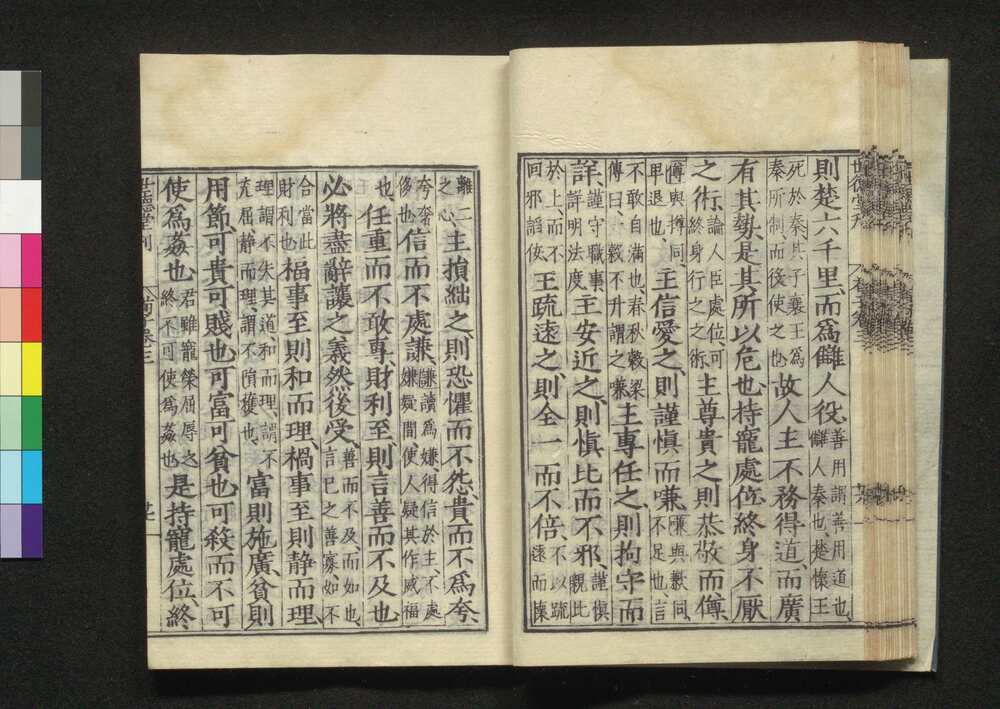 世德堂刊
則楚六千里、而爲讎人役、善用謂善用道也、讎人秦也、楚懷王
死於秦、其子襄王爲秦所制而役使之也故人主不務得道、而廣
有其勢、是其所以危也、持寵處位、終身不厭
之術、論人臣處位、可終身行之之術主尊貴之、則恭敬而僔、
僔與撙同、卑退也、主信愛之、則謹慎而嗛、嗛與歉同、不足也、言
不敢自滿也、春秋穀梁傳曰、一穀不升謂之嗛主專任之、則拘守而
詳、謹守職事、詳明法度主安近之、則慎比而不邪、謹慎親比
於上、而不回邪謟佞主疏遠之、則全一而不倍、不以疏遠而懷
離二之心、主損絀之、則恐懼而不怨、貴而不爲夸、
夸奓侈也信而不處謙、謙讀爲嫌、得信於主、不處嫌疑間、使人疑其作威福
也、任重而不敢專、財利至、則言善而不及也
必將盡辭讓之義、然後受、善而不及、而如也、言己之善寡、如不
合當此財利也福事至則和而理、禍事至則静而理、
理謂不失其道、和而理、謂不充屈、静而理、謂不隕穫也、富則施廣、貧則
用節、可貴可賤也、可富可貧也、可殺而不可
使爲姦也、君雖寵榮屈辱之、終不可使爲姦也是持寵處位、終
世德堂刊 荀子卷三 廿一